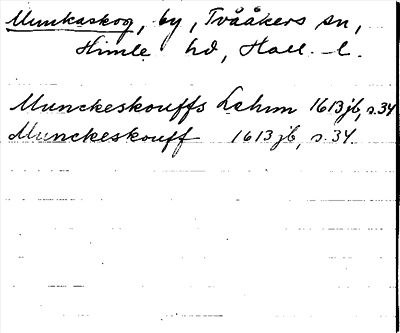 Munkaskog, by, Tvååkers sn,
Himle hd, Hall. l.
Munckeskouffs Lehnn 1613 jb, s. 34
Munckeskouff 1613 jb, s. 34.